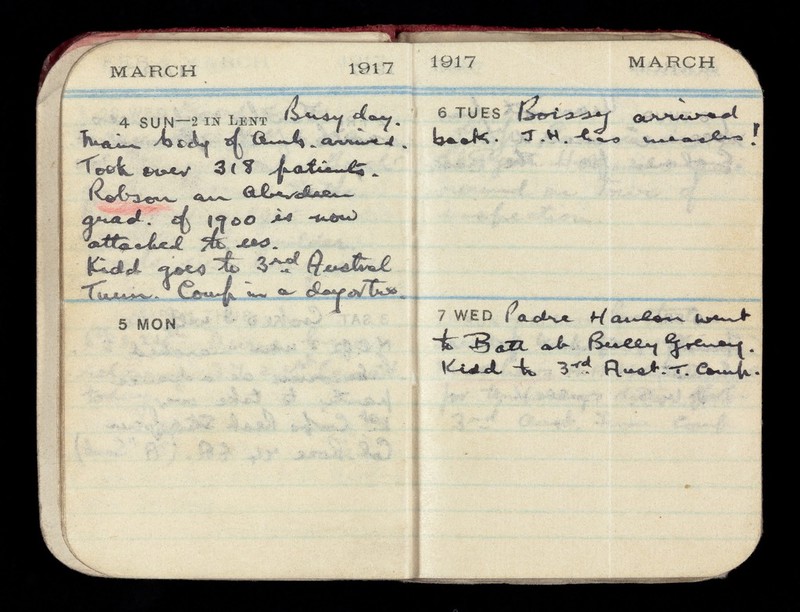 MARCH 1917
4 SUN—2 IN LENT Busy day.
Main body of Amb. arrived.
Took over 318 patients.
Robson an Aberdeen
grad. of 1900 is now
attached to us.
Kidd goes to 3rd Austral
Tunn. Comp in a day or two.
5 MON
1917 MARCH
6 TUES Boissy arrived
back. J.H. has measles!
7 WED Padre Hanlon went
to Batt at Bully Grenay.
Kidd to 3rd Aust. T. Comp.